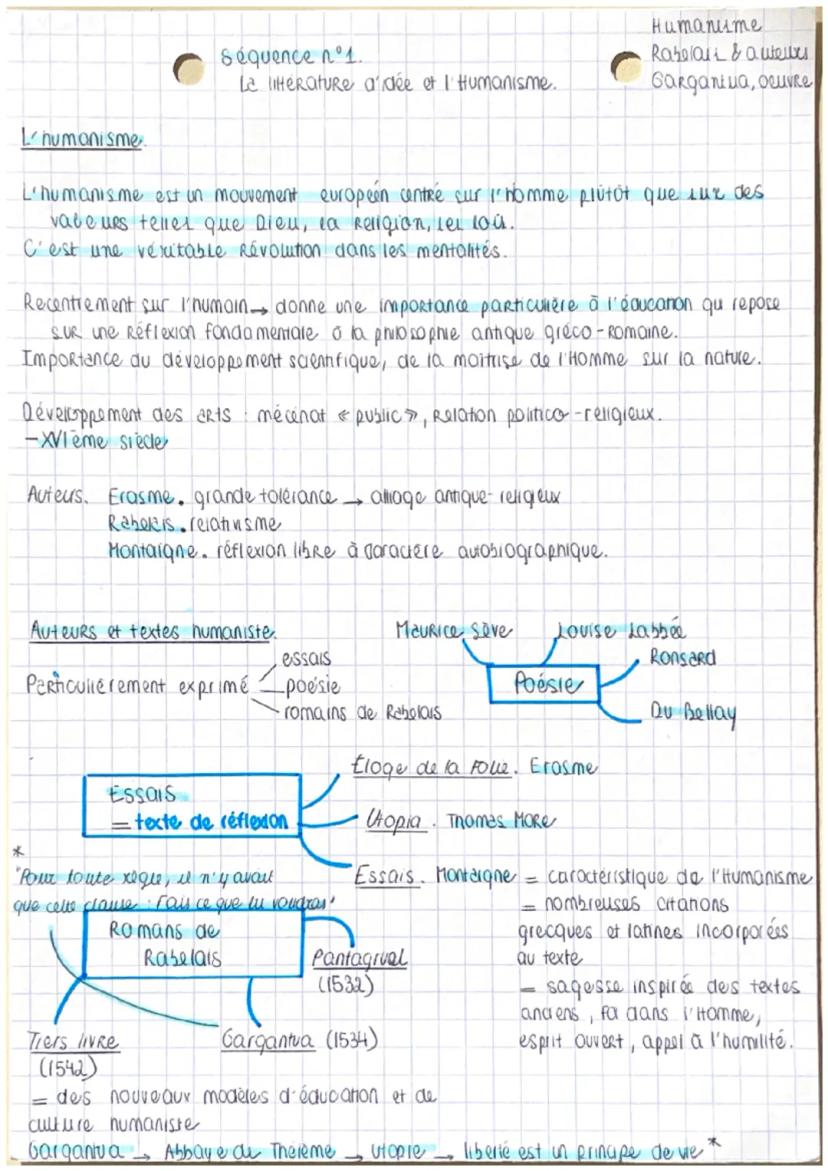 Humanisme
Rabelais & auteurs
Gargantua, oeuvre
Séquence n°1.
La littérature d'idée et l'Humanisme.
L'humanisme.
L'humanisme est un mouvement européen centré sur l'homme plutôt que sur des
valeurs telles que Dieu, la Religion, les lois.
C'est une véritable Révolution dans les mentalités.
Recentrement sur l'humain → donne une importance particulière à l'éducation qu repose
sur une Réflexion fondamentale à la philosophie antique gréco-Romaine.
Importance du développement scientifique, de la maitrise de l'Homme sur la nature.
Développement des arts : mécénat « public », Relation politico-religieux.
- XVIème siècle
Auteurs. Erasme. grande tolérance → alliage antique-religieux
Rabelais. relativisme
Montaigne. réflexion libre à caractère autobiographique.
Auteurs et textes humaniste.
Particulièrement exprimé
essais
poésie
romains de Rabelais
Maurice Sève
Louise Labbée
Ronsard
Poésie
Du Bellay
Essais
= texte de réflexion
Éloge de la Folie. Erasme
Utopia. Thomas More
Essais. Montaigne = caractéristique de l'Humanisme
= nombreuses citations
grecques et latines incorporées
au texte
= sagesse inspirée des textes
anciens, foi dans l'Homme,
esprit ouvert, appel à l'humilité.
*
"Pour toute règle, il n'y avait
que cette clause : Fais ce que tu voudras"
Romans de
Rabelais
Pantagruel
(1532)
Tiers livre
(1542)
Gargantua (1534)
= des nouveaux modèles d'éducation et de
culture humaniste
Gargantua → Abbaye de Thélème → utopie → liberté est un principe de vie *